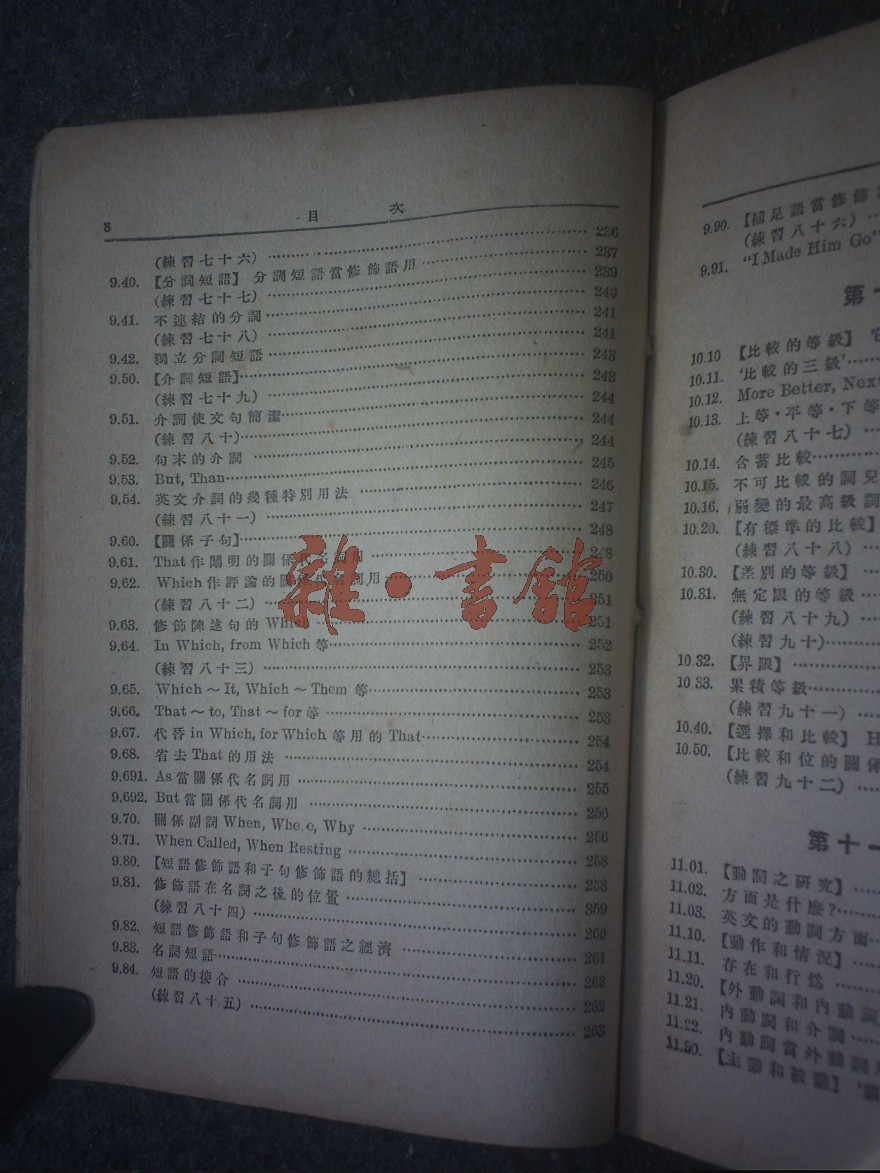 8 目次
(練習七十六) 236
9.40. 【分詞短語】 分詞短語當修飾語用 237
(練習七十七) 239
9.41. 不連結的分詞 240
(練習七十八) 241
9.42. 獨立分詞短語 241
9.50. 【介詞短語】 243
(練習七十九) 243
9.51. 介詞使文句簡潔 244
(練習八十) 244
9.52. 句末的介詞 244
9.53. But, Than 245
9.54. 英文介詞的幾種特別用法 246
(練習八十一) 247
9.60. 【關係子句】 248
9.61. That作闡明的關係代名詞用 248
9.62. Which作評論的關係代名詞用 250
(練習八十二) 251
9.63. 修飾陳述句的 Which 251
9.64. In Which, from Which 等 252
(練習八十三) 253
9.65. Which～It, Which～Them 等 253
9.66. That～to, That～for 等 253
9.67. 代替 in Which, for Which 等用的 That 254
9.68. 省去 That 的用法 254
9.691. As當關係代名詞用 255
9.692. But當關係代名詞用 256
9.70. 關係副詞 When, Whe.e, Why 256
9.71. When Called, When Resting 258
9.80. 【短語修飾語和子句修飾語的總括】 258
9.81. 修飾語在名詞之後的位置 359
(練習八十四) 260
9.82. 短語修飾語和子句修飾語之經濟 261
9.83. 名詞短語 262
9.84. 短語的接合 262
(練習八十五) 263
雜·書館
9.90. 【補足語當修飾
(練習八十六)
9.91. "I Made Him Go"
第十
10.10 【比較的等級】
10.11. '比較的三級'
10.12. More Better, Next
10.13. 上等·平等·下等
(練習八十七)
10.14. 含蓄比較
10.15. 不可比較的詞兒
10.16. 弱變的最高級詞
10.20. 【有標準的比較】
(練習八十八)
10.30. 【差別的等級】
10.31. 無定限的等級
(練習八十九)
(練習九十)
10.32. 【界限】
10.33. 累積等級
(練習九十一)
10.40. 【選擇和比較】 H
10.50. 【比較和位的關係
(練習九十二)
第十一
11.01. 【動詞之研究】
11.02. 方面是什麼?
11.03. 英文的動詞方面
11.10. 【動作和情況】
11.11. 存在和行爲
11.20. 【外動詞和內動詞
11.21. 內動詞和介詞
11.22. 內動詞當外動詞
11.30. 【主動和被動】